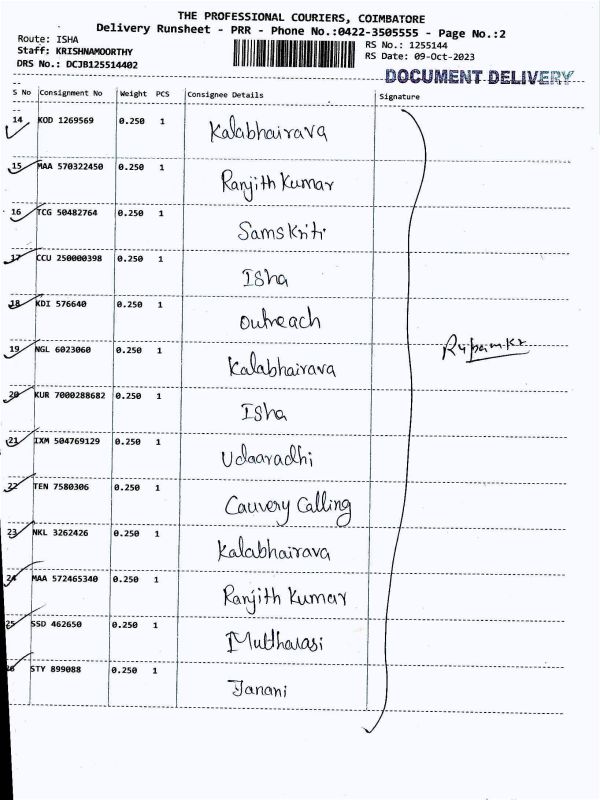 THE PROFESSIONAL COURIERS, COIMBATORE
Delivery Runsheet - PRR - Phone No.:0422-3505555 - Page No.:2
Route: ISHA
RS No.: 1255144
Staff: KRISHNAMOORTHY
RS Date: 09-Oct-2023
DRS No.: DCJB125514402
DOCUMENT DELIVERY
S No Consignment No Weight PCS Consignee Details Signature
14 KOD 1269569 0.250 1 Kalabhairava
15 MAA 570322450 0.250 1 Ranjith Kumar
16 TCG 50482764 0.250 1 Samskriti
17 CCU 250000398 0.250 1 Isha
18 KDI 576640 0.250 1 Outreach
19 NGL 6023060 0.250 1 Kalabhairava
20 KUR 7000288682 0.250 1 Isha
21 IXM 504769129 0.250 1 Udaaradhi
22 TEN 7580306 0.250 1 Cauvery Calling
23 NKL 3262426 0.250 1 Kalabhairava
24 MAA 572465340 0.250 1 Ranjith Kumar
25 SSD 462650 0.250 1 Mutharasi
26 STY 899088 0.250 1 Janani